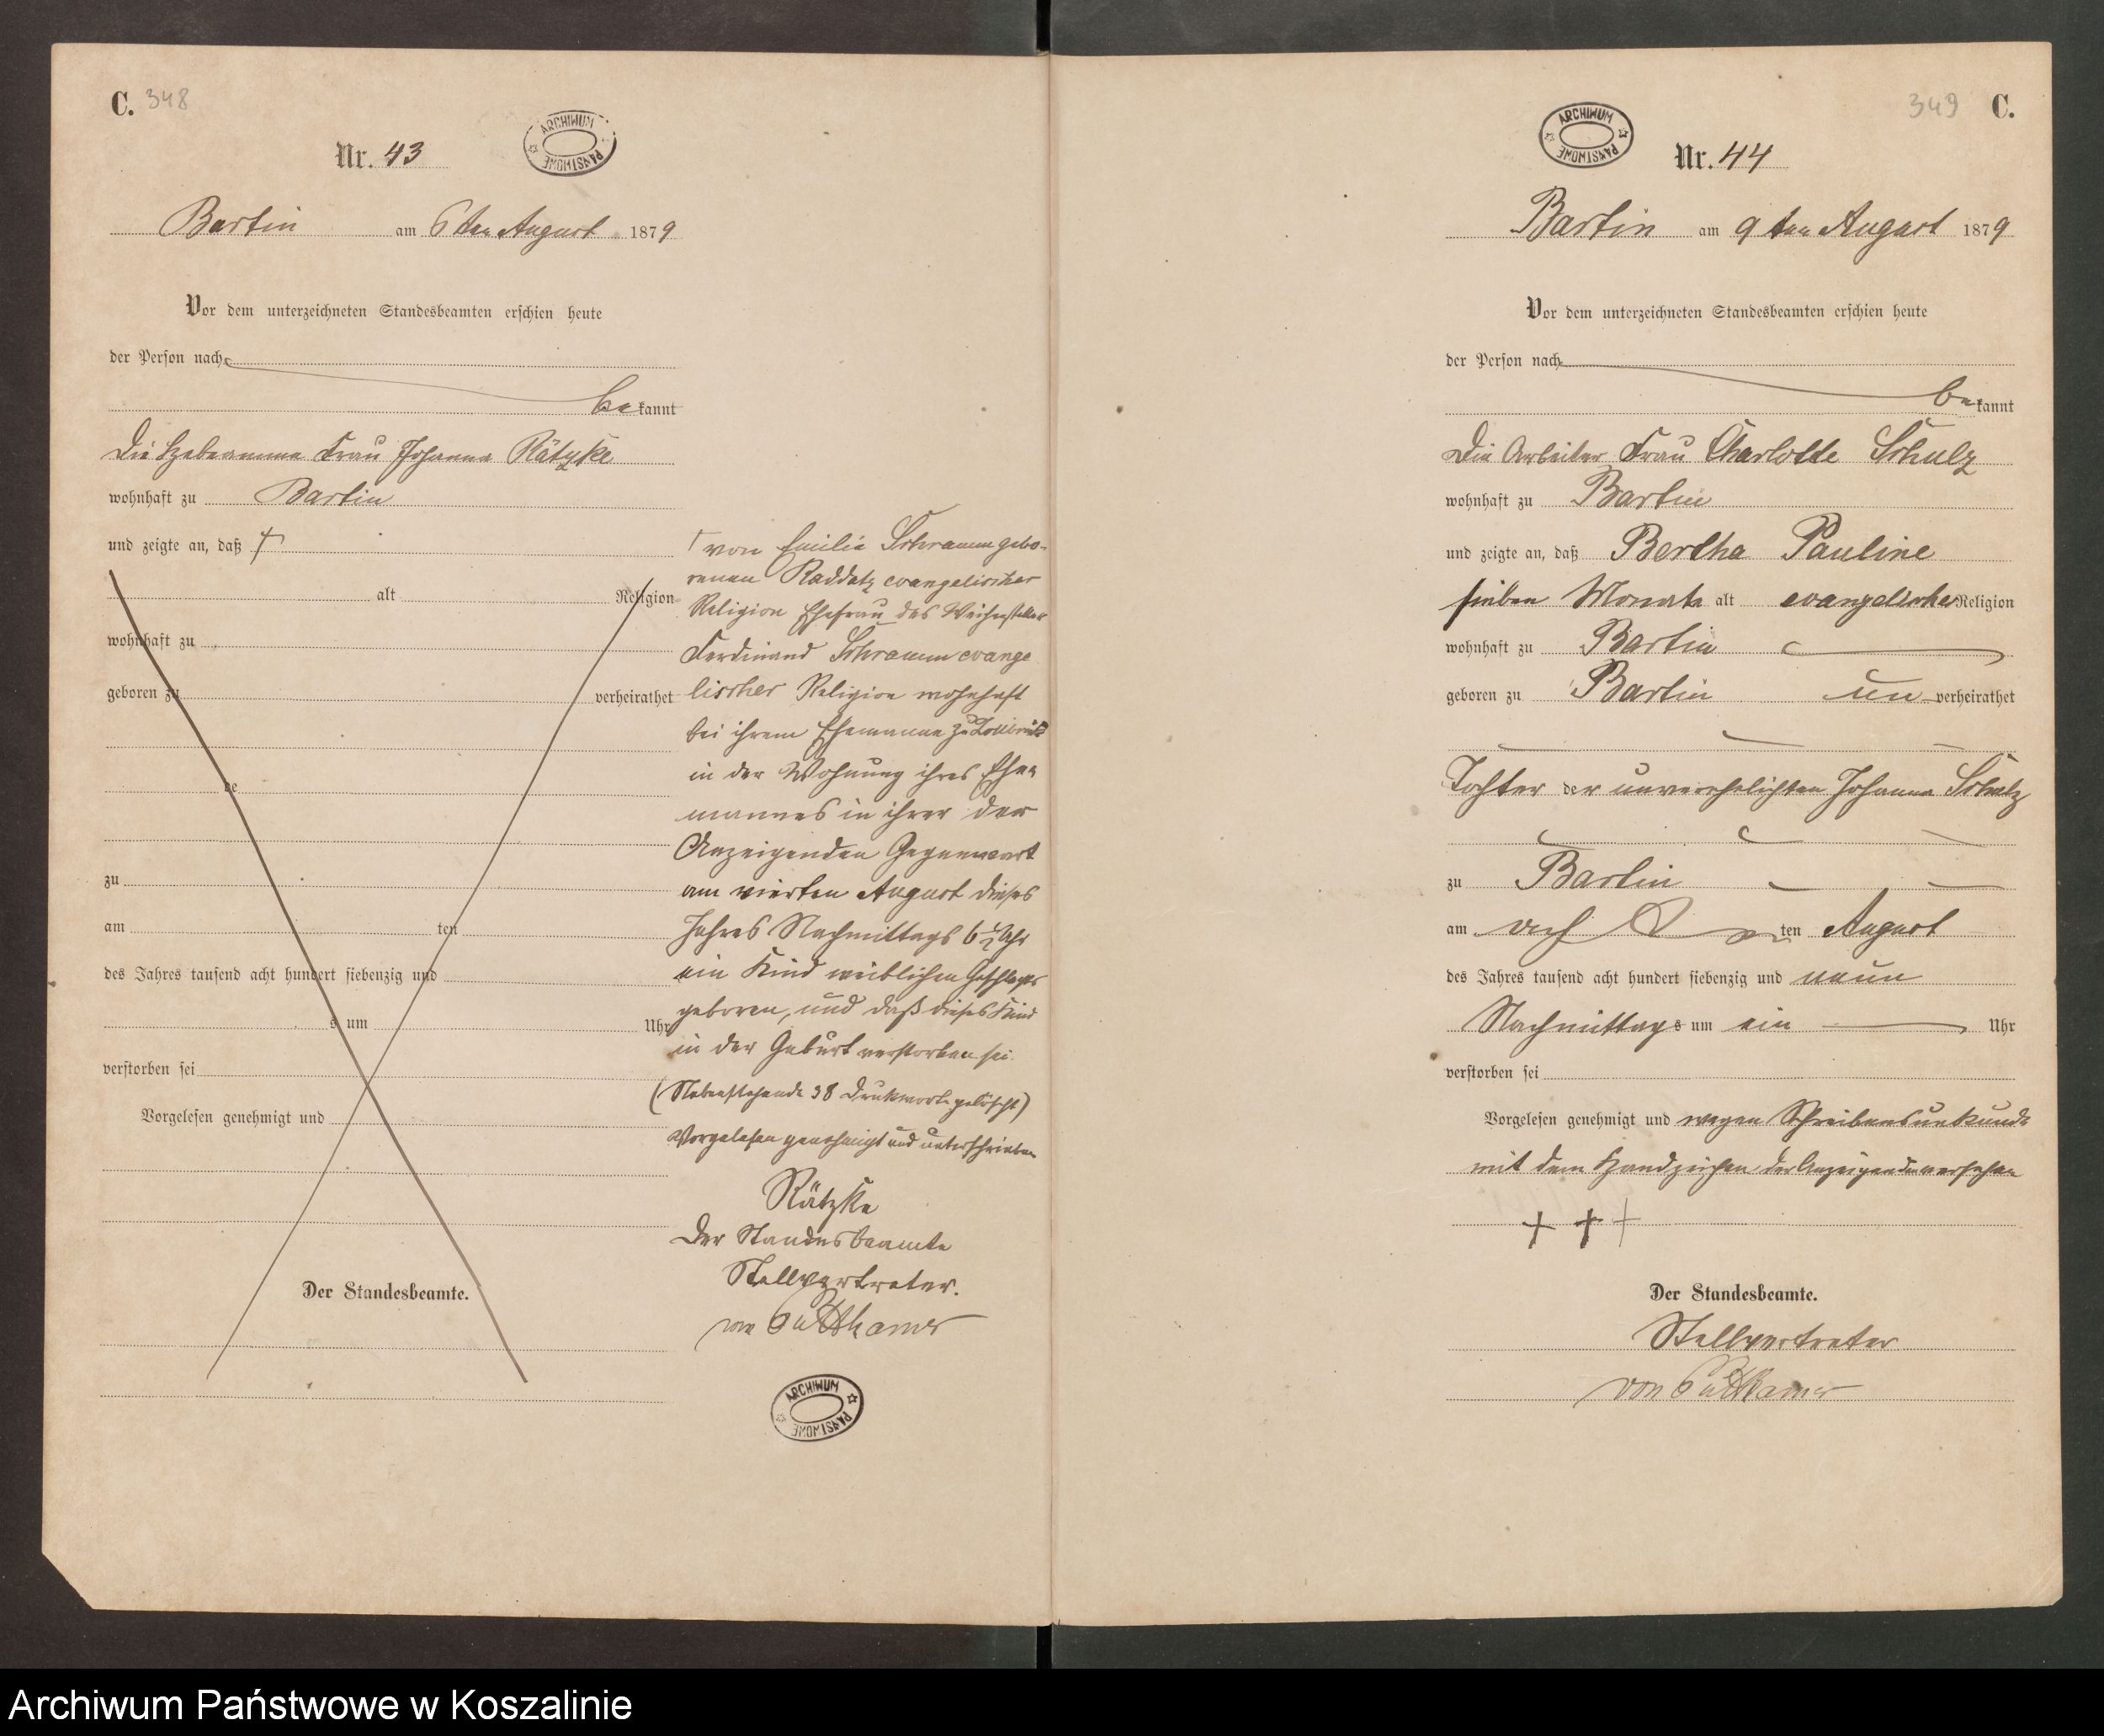 C. 348
Nr. 43
ARCHIWUM PAŃSTWOWE
Bartin am 6ten August 1879
Vor dem unterzeichneten Standesbeamten erschien heute
der Person nach
bekannt
die Hebeamme Frau Johanna Rätzke
wohnhaft zu Bartin
und zeigte an, daß
alt Religion
wohnhaft zu
geboren zu verheirathet
de
zu
am ten
des Jahres tausend acht hundert siebenzig und
s um Uhr
verstorben sei
Vorgelesen genehmigt und
Der Standesbeamte.
von Emilie Schramm gebo-
renen Raddatz evangelischer
Religion Ehefrau des
Ferdinand Schramm evange
lischer Religion wohnhaft
bei ihrem Ehemanne zu
in der Wohnung ihres Ehe
mannes in ihrer der
Anzeigenden Gegenwart
am vierten August dieses
Jahres Nachmittags 6½ Uhr
ein Kind weiblichen Geschlechts
geboren, und daß dieses Kind
in der Geburt verstorben sei.
(Nebenstehende 38 Druckworte gelöscht)
Vorgelesen genehmigt und unterschrieben
Rätzke
Der Standesbeamte
Stellvertreter.
von Puttkamer
ARCHIWUM PAŃSTWOWE
349 C.
ARCHIWUM PAŃSTWOWE
Nr. 44
Bartin am 9ten August 1879
Vor dem unterzeichneten Standesbeamten erschien heute
der Person nach
bekannt
die Arbeiter Frau Charlotte Schulz
wohnhaft zu Bartin
und zeigte an, daß Bertha Pauline
sieben Monate alt evangelischer Religion
wohnhaft zu Bartin
geboren zu Bartin unverheirathet
Tochter der unverehelichten Johanna Schulz
zu Bartin
am ten August
des Jahres tausend acht hundert siebenzig und neun
Nachmittags um ein Uhr
verstorben sei
Vorgelesen genehmigt und wegen Schreibensunkunde
mit dem Handzeichen der Anzeigenden versehen
+ + +
Der Standesbeamte.
Stellvertreter
von Puttkamer
Archiwum Państwowe w Koszalinie